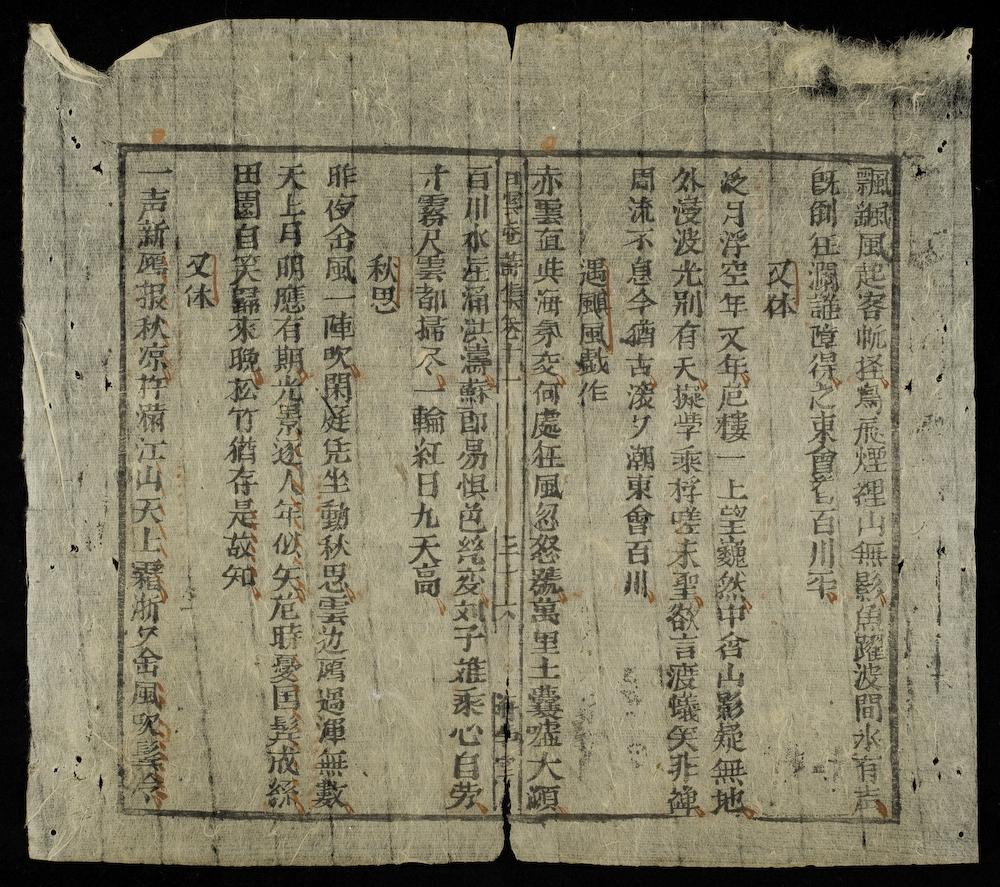 飄飄風起客帆挂鳥辰煙裡山無影魚躍波間水有声
既倒狂瀾誰障得之東會有百川平
又体
泛月浮空年又年危樓一上望巍然中含山影疑無地
外浸波光別有天擬学乘桴嗟末聖欲言渡蟻矣非禅
周流不息今猶古滾夕潮東會百川
遇颶風戯作
赤雲亘此海氛交何處狂風忽怒號萬里土囊噓大
百川水圧涌洪濤蘇郎易惧色幾変刘子雄乘心自劳
寸霧尺雲都掃尽一輪紅日九天高
秋思
昨夜金風一陣吹閑庭凭坐動秋思雲边鴈過渾無數
天上月明應有期光景逐人年似矢危時憂囯髮成絲
田園自笑歸來晚松竹猶存是故知
又体
一声新鴈报秋凉井满江山天上霜淅夕金風吹髮冷
白雲庵詩集卷十一
三十六